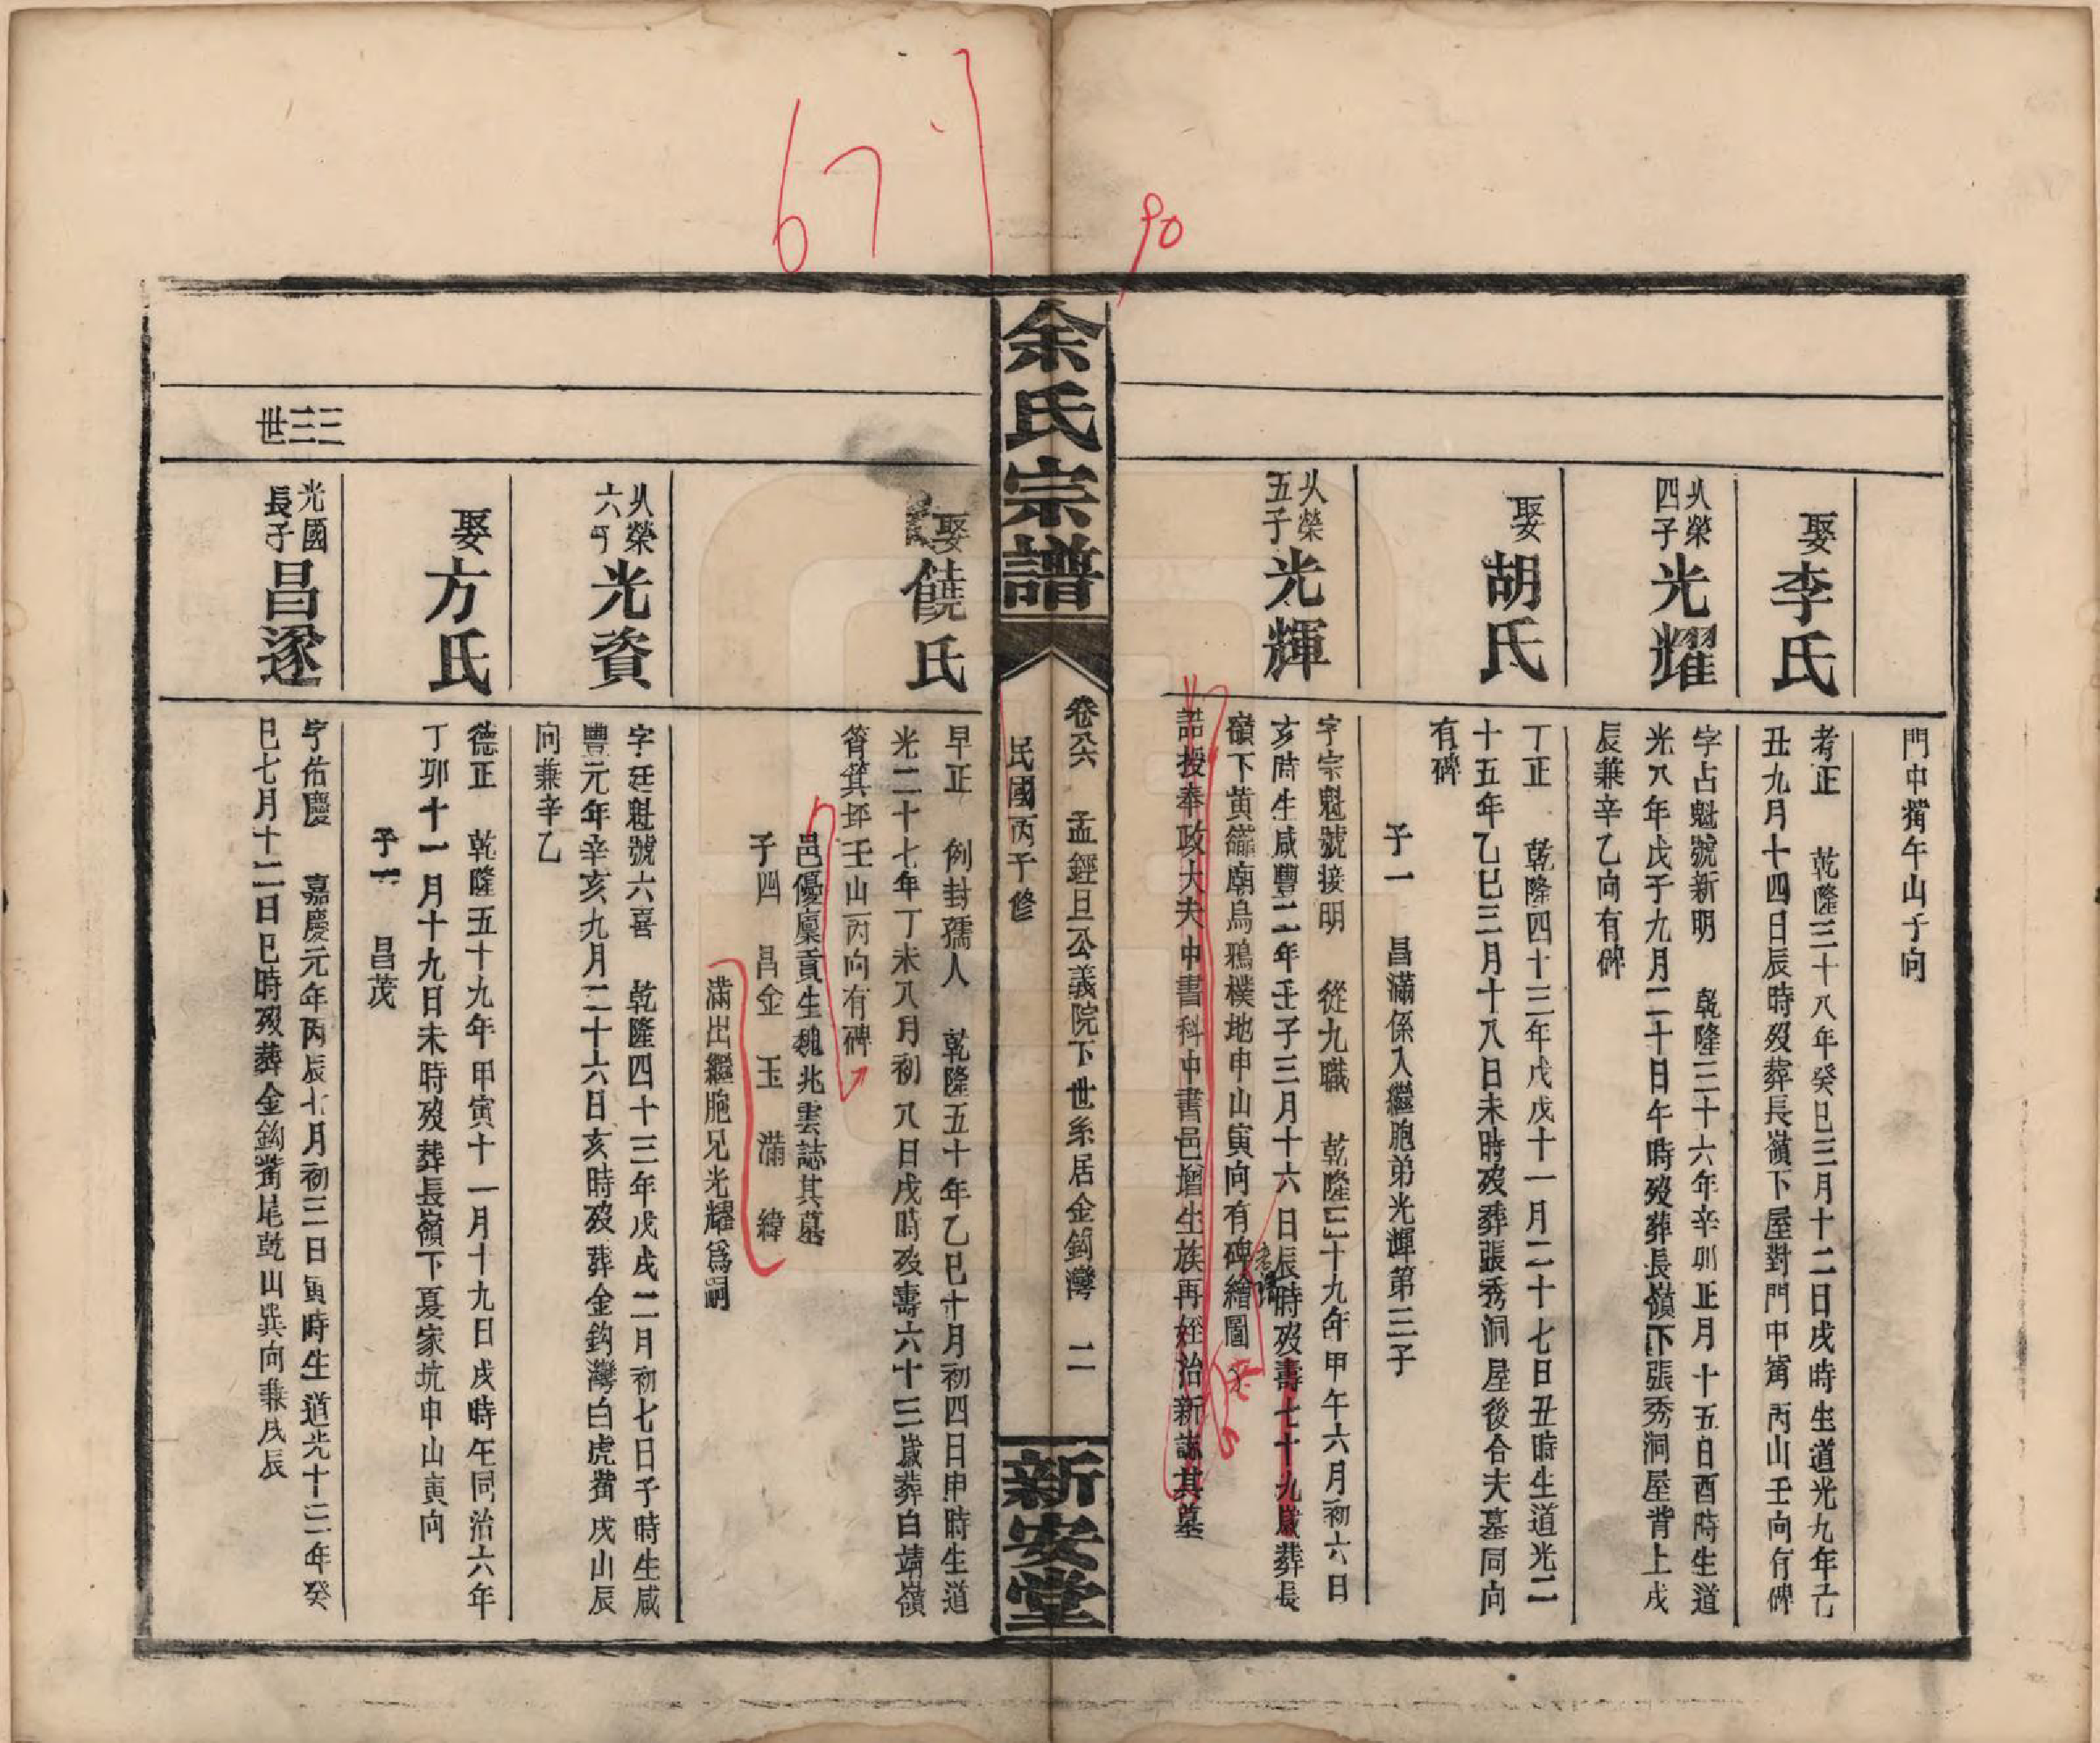 67
90
門中獨午山子向
娶李氏
考正　乾隆三十八年癸巳三月十二日戌時生道光九年己
丑九月十四日辰時歿葬長嶺下屋對門中窩丙山壬向有碑
从榮
四子
光耀
字占魁號新明　乾隆三十六年辛卯正月十五日酉時生道
光八年戊子九月二十日午時歿葬長嶺下張秀洞屋背上戌
辰兼辛乙向有碑
娶胡氏
丁正　乾隆四十三年戊戌十一月二十七日丑時生道光二
十五年乙巳三月十八日未時歿葬張秀洞屋後合夫墓同向
有碑
子一　昌滿係入繼胞弟光輝第三子
从榮
五子
光輝
字宗魁號接明　從九職　乾隆三十九年甲午六月初六日
亥時生咸豐二年壬子三月十六日辰時歿壽七十九歲葬長
嶺下黄籬廟烏鴉樸地申山寅向有碑繪圖
誥授奉政大夫中書科中書邑增生族再姪治新誌其墓
余氏宗譜
卷八六　孟經旦公義院下世系居金鈎灣　二
民國丙子修
新安堂
娶饒氏
早正　例封孺人　乾隆五十年乙巳十月初四日申時生道
光二十七年丁未八月初八日戌時歿壽六十三歲葬白靖嶺
筲箕坪壬山丙向有碑
邑優廩貢生魏兆雲誌其墓
子四　昌金　玉　滿　緯
滿出繼胞兄光耀爲嗣
从榮
六子
光資
字廷魁號六喜　乾隆四十三年戊戌二月初七日子時生咸
豐元年辛亥九月二十六日亥時歿葬金鈎灣白虎觜戌山辰
向兼辛乙
娶方氏
德正　乾隆五十九年甲寅十一月十九日戌時生同治六年
丁卯十一月十九日未時歿葬長嶺下夏家坑申山寅向
子一　昌茂
三三世
光國
長子
昌遂
字佑慶　嘉慶元年丙辰七月初三日寅時生道光十三年癸
巳七月十二日巳時歿葬金鈎觜尾乾山巽向兼戌辰